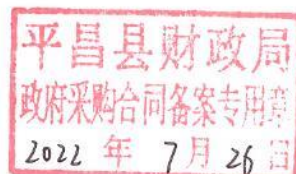 平昌县财政局
政府采购合同备案专用章
2022 年 7 月 26 日